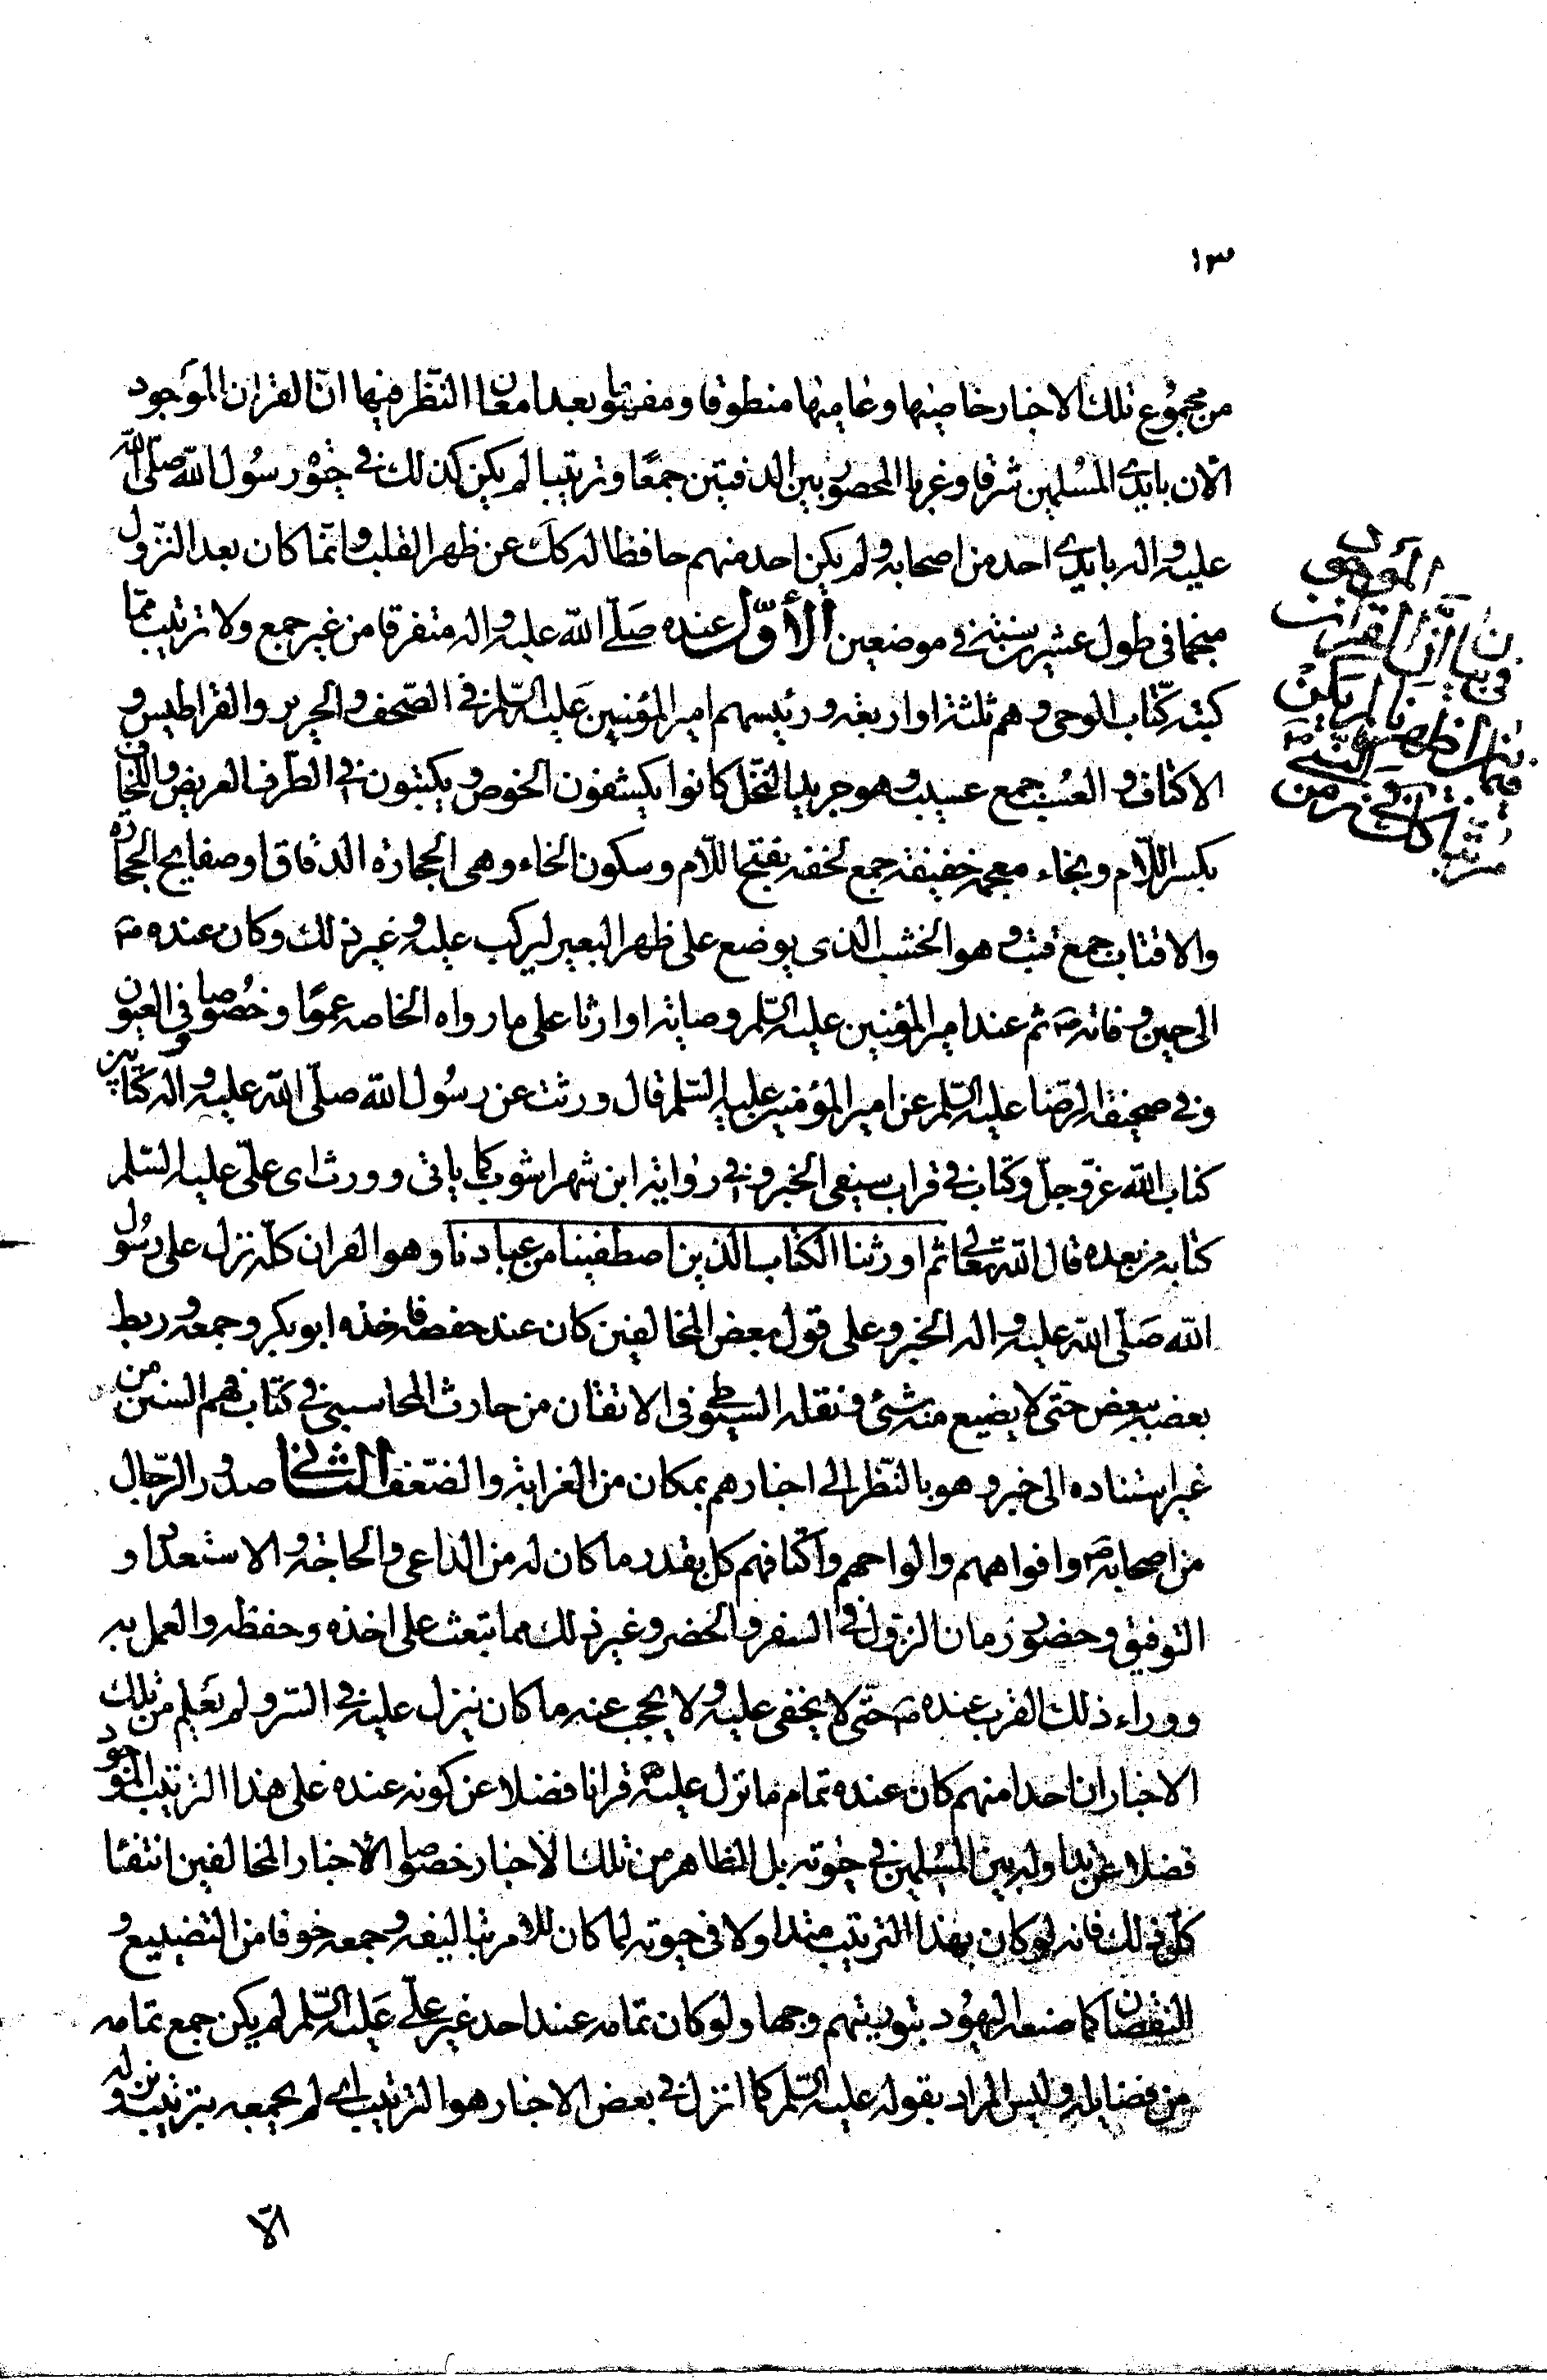 ١٣
من مجموع تلك الاخبار خاصيها وعاميها منطوقا ومفهوما بعد امعان النظر فيها ان القران الموجود
الآن بايدى المسلمين شرقا وغربا المحصور بين الدفتين جمعًا وترتيبا لم يكن كذلك في حيوة رسول الله صلى الله
عليه واله بايدى احد من اصحابه ولم يكن احد منهم حافظا له كك عن ظهر القلب وانما كان بعد النزول
منجما في طول عشرين سنة في موضعين الأوّل عنده صلّى الله عليه واله متفرقا من غير جمع ولا ترتيب مما
كتبه كتّاب الوحى وهم ثلثة او اربعة ورئيسهم امير المؤمنين عليه السّلم في الصّحف والحرير والقراطيس و
الاكتاف والعسب جمع عسيب وهو جريد النخل كانوا يكشفون الخوص ويكتبون في الطّرف العريض واللخاف
بكسر اللام وبخاء معجمة خفيفة جمع لخفه بفتح اللّام وسكون الخاء وهى الحجارة الدقاق او صفايح الحجارة
والاقتاب جمع قتب وهو الخشب الذى يوضع على ظهر البعير ليركب عليه وغير ذلك وكان عنده ص
الى حين وفاته ص ثم عند امير المؤمنين عليه السّلم وصاية او ارثا على ما رواه الخاصه عموما وخصوصا في العيون
وفي صحيفة الرضا عليه السّلم عن امير المؤمنين عليه السّلم قال ورثت عن رسول الله صلّى الله عليه واله كتابين
كتاب الله عزّ وجلّ وكتاب في قراب سيفى الخبر وفي رواية ابن شهراشوب كما ياتى وورث اى علىّ عليه السّلم
كتابه من بعده قال الله تعالى ثم اورثنا الكتاب الذين اصطفينا من عبادنا وهو القران كلّه نزل على رسول
الله صَلّى الله عليه واله الخبر وعلى قول بعض المخالفين كان عند حفصة فاخذه ابوبكر وجمعه وربط
بعضه ببعض حتّى لا يضيع منه شئ ونقله السيوطى في الاتقان من حارث المحاسبى في كتاب فهم السنن من
غير استناده الى خبر وهو بالنّظر الى اخبارهم بمكان من الغرابة والضّعف الثانى صدور الرّجال
من اصحابه ص وافواههم والواحهم واكتافهم كل بقدر ما كان له من الداعى والحاجة والاستعداد و
التوفيق وحضور زمان النزول في السفر والحضر وغير ذلك مما يبعث على اخذه وحفظه والعمل به
ووراء ذلك القرب عنده ص حتّى لا يخفى عليه ولا يحجب عنه ما كان ينزل عليه في السّر ولم يعلم من تلك
الاخبار ان احدا منهم كان عنده تمام ما نزل عليه ص قرانا فضلا عن كونه عنده على هذا الترتيب الموجود
فضلا عن تداوله بين المسلمين في حيوته بل الظاهر من تلك الاخبار خصوصا الأخبار المخالفين انتفاء
كلّ ذلك فانه لو كان بهذا الترتيب متداولا فى حيوته لما كان للامر بتاليفه وجمعه خوفا من التضييع و
النقصان كما صنعه اليهود بتوريتهم وجها ولو كان تمامه عند احد غير علىّ عَليه السّلم لم يكن جمع تمامه
من فضايله وليس المراد بقوله عليه السّلم كما انزل في بعض الاخبار هو الترتيب اى لم يجمعه بترتيب نزوله
الّا
في بيان ان القران الموجود
لم يكن
في زمن النبى ص